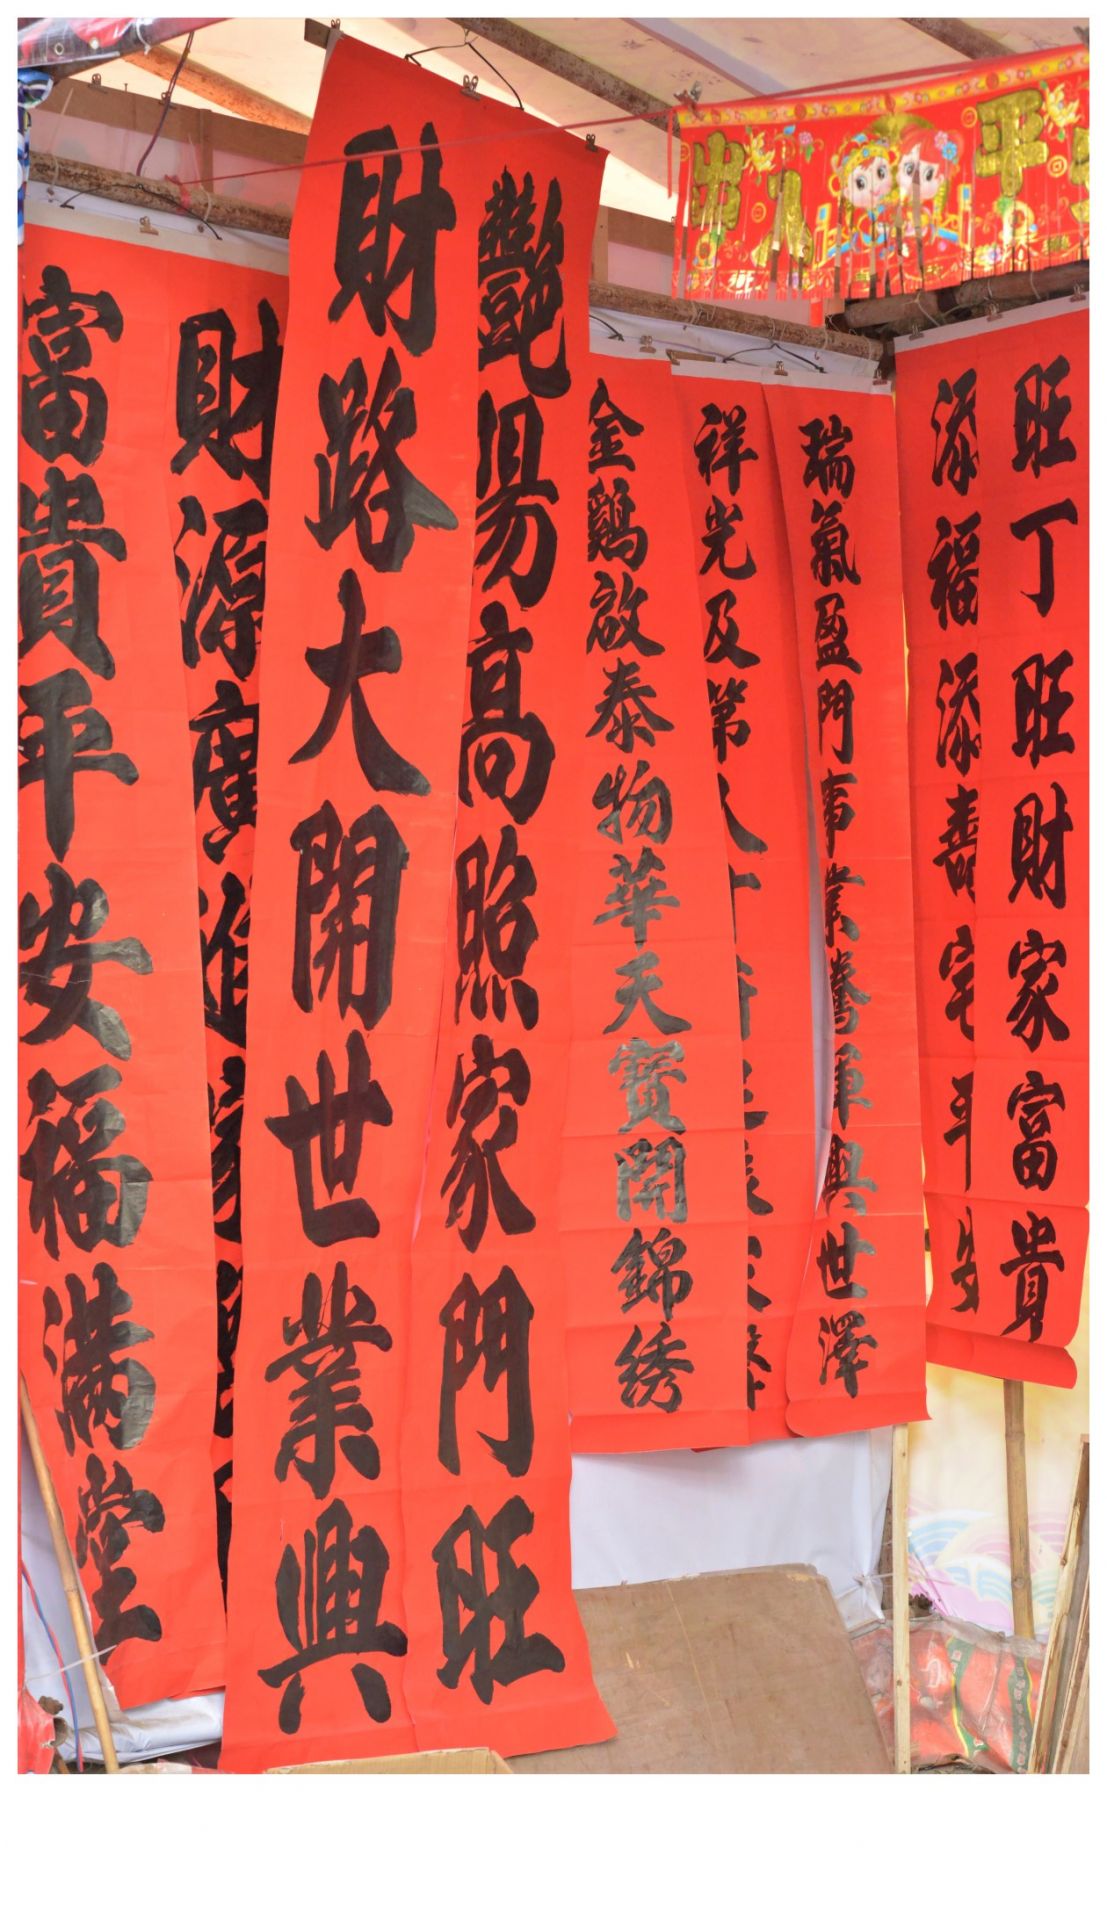 出入平
旺丁旺財家富貴
添福添壽宅平安
瑞氣盈門事業騰輝興世澤
祥光及第人
金鷄啟泰物華天寶開錦绣
艷陽高照家門旺
財路大開世業興
財源廣進家
富貴平安福满堂